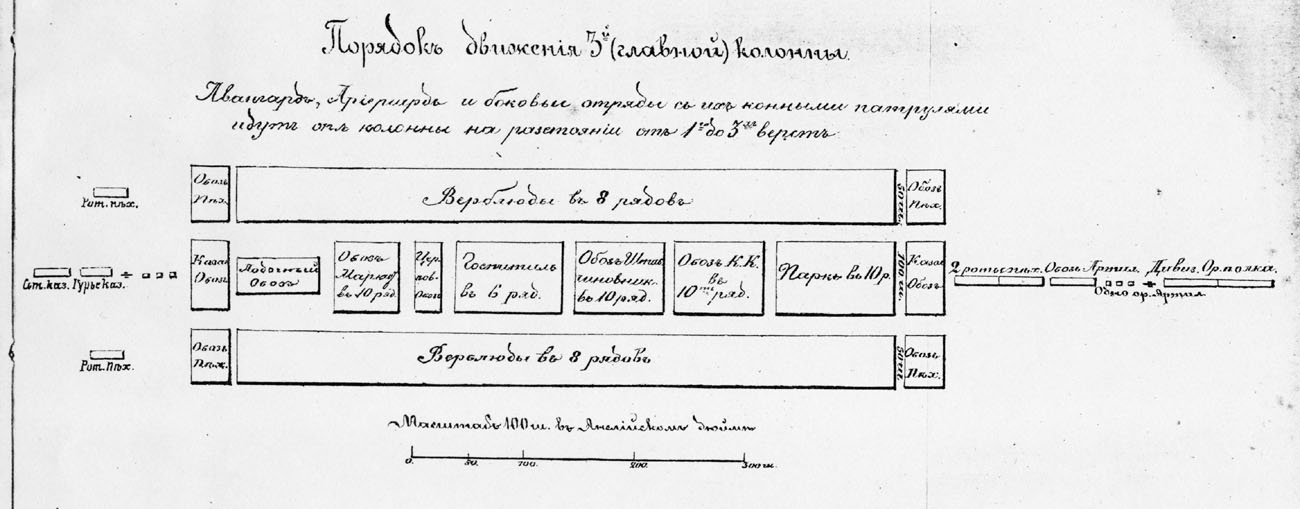 Порядокъ движенія 3й (главной) колонны.
Авангардъ, Аріергардъ и боковые отряды съ ихъ конными патрулями
идутъ отъ колонны на разстояніи отъ 1й до 3хъ верстъ.
Рот. пѣх.
Обозъ
Пѣх.
Верблюды въ 8 рядовъ
50 ш.
Обозъ
Пѣх.
Сот. каз. Гурьс каз.
Казач
Обозъ
Лодочный
Обозъ
Обозъ
Маркит
въ 10 ряд.
Цер
ков.
Обозъ
Госпиталь
въ 6 ряд.
Обозъ Штаб
чиновник.
въ 10 ряд.
Обозъ К.К.
въ
10ти ряд.
Паркъ въ 10 р.
100 ш.
Казач
Обозъ
2 роты пѣх. Обозъ Артил. Дивиз. Ор. полка.
Одно ор. Артил
Рот. Пѣх.
Обозъ
Пѣх.
Верблюды въ 8 рядовъ
50 ш.
Обозъ
Пѣх.
Масштабъ 100 ш. въ Англійскомъ дюймѣ
0. 50. 100. 200. 300 ш.